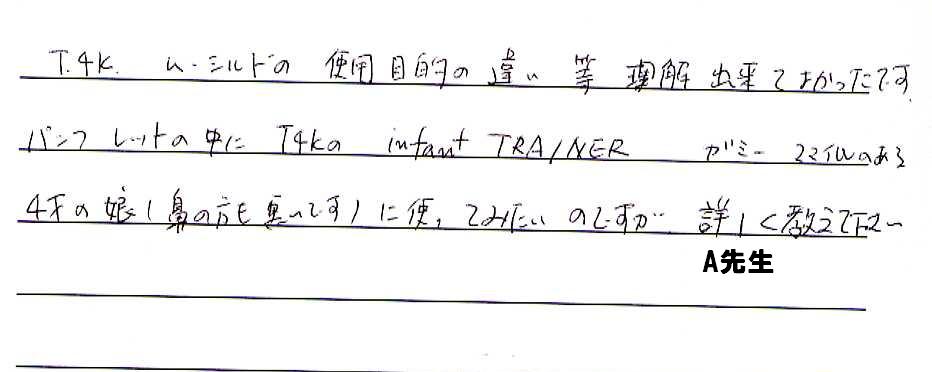 T.4K. ムーシルドの 使用目的の違い 等 理解出来てよかったです。
パンフレットの中に T4Kの infant TRAINER ガミースマイルのある
4才の娘(鼻の方も悪いです)に使ってみたいのですが 詳しく教えて下さい
A先生